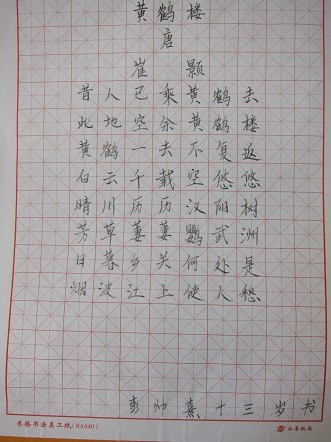 黄鹤楼
唐
崔颢
昔人已乘黄鹤去
此地空余黄鹤楼
黄鹤一去不复返
白云千载空悠悠
晴川历历汉阳树
芳草萋萋鹦武洲
日暮乡关何处是
烟波江上使人愁
彭灿熹十三岁书
米格书法美工纸(RA640)